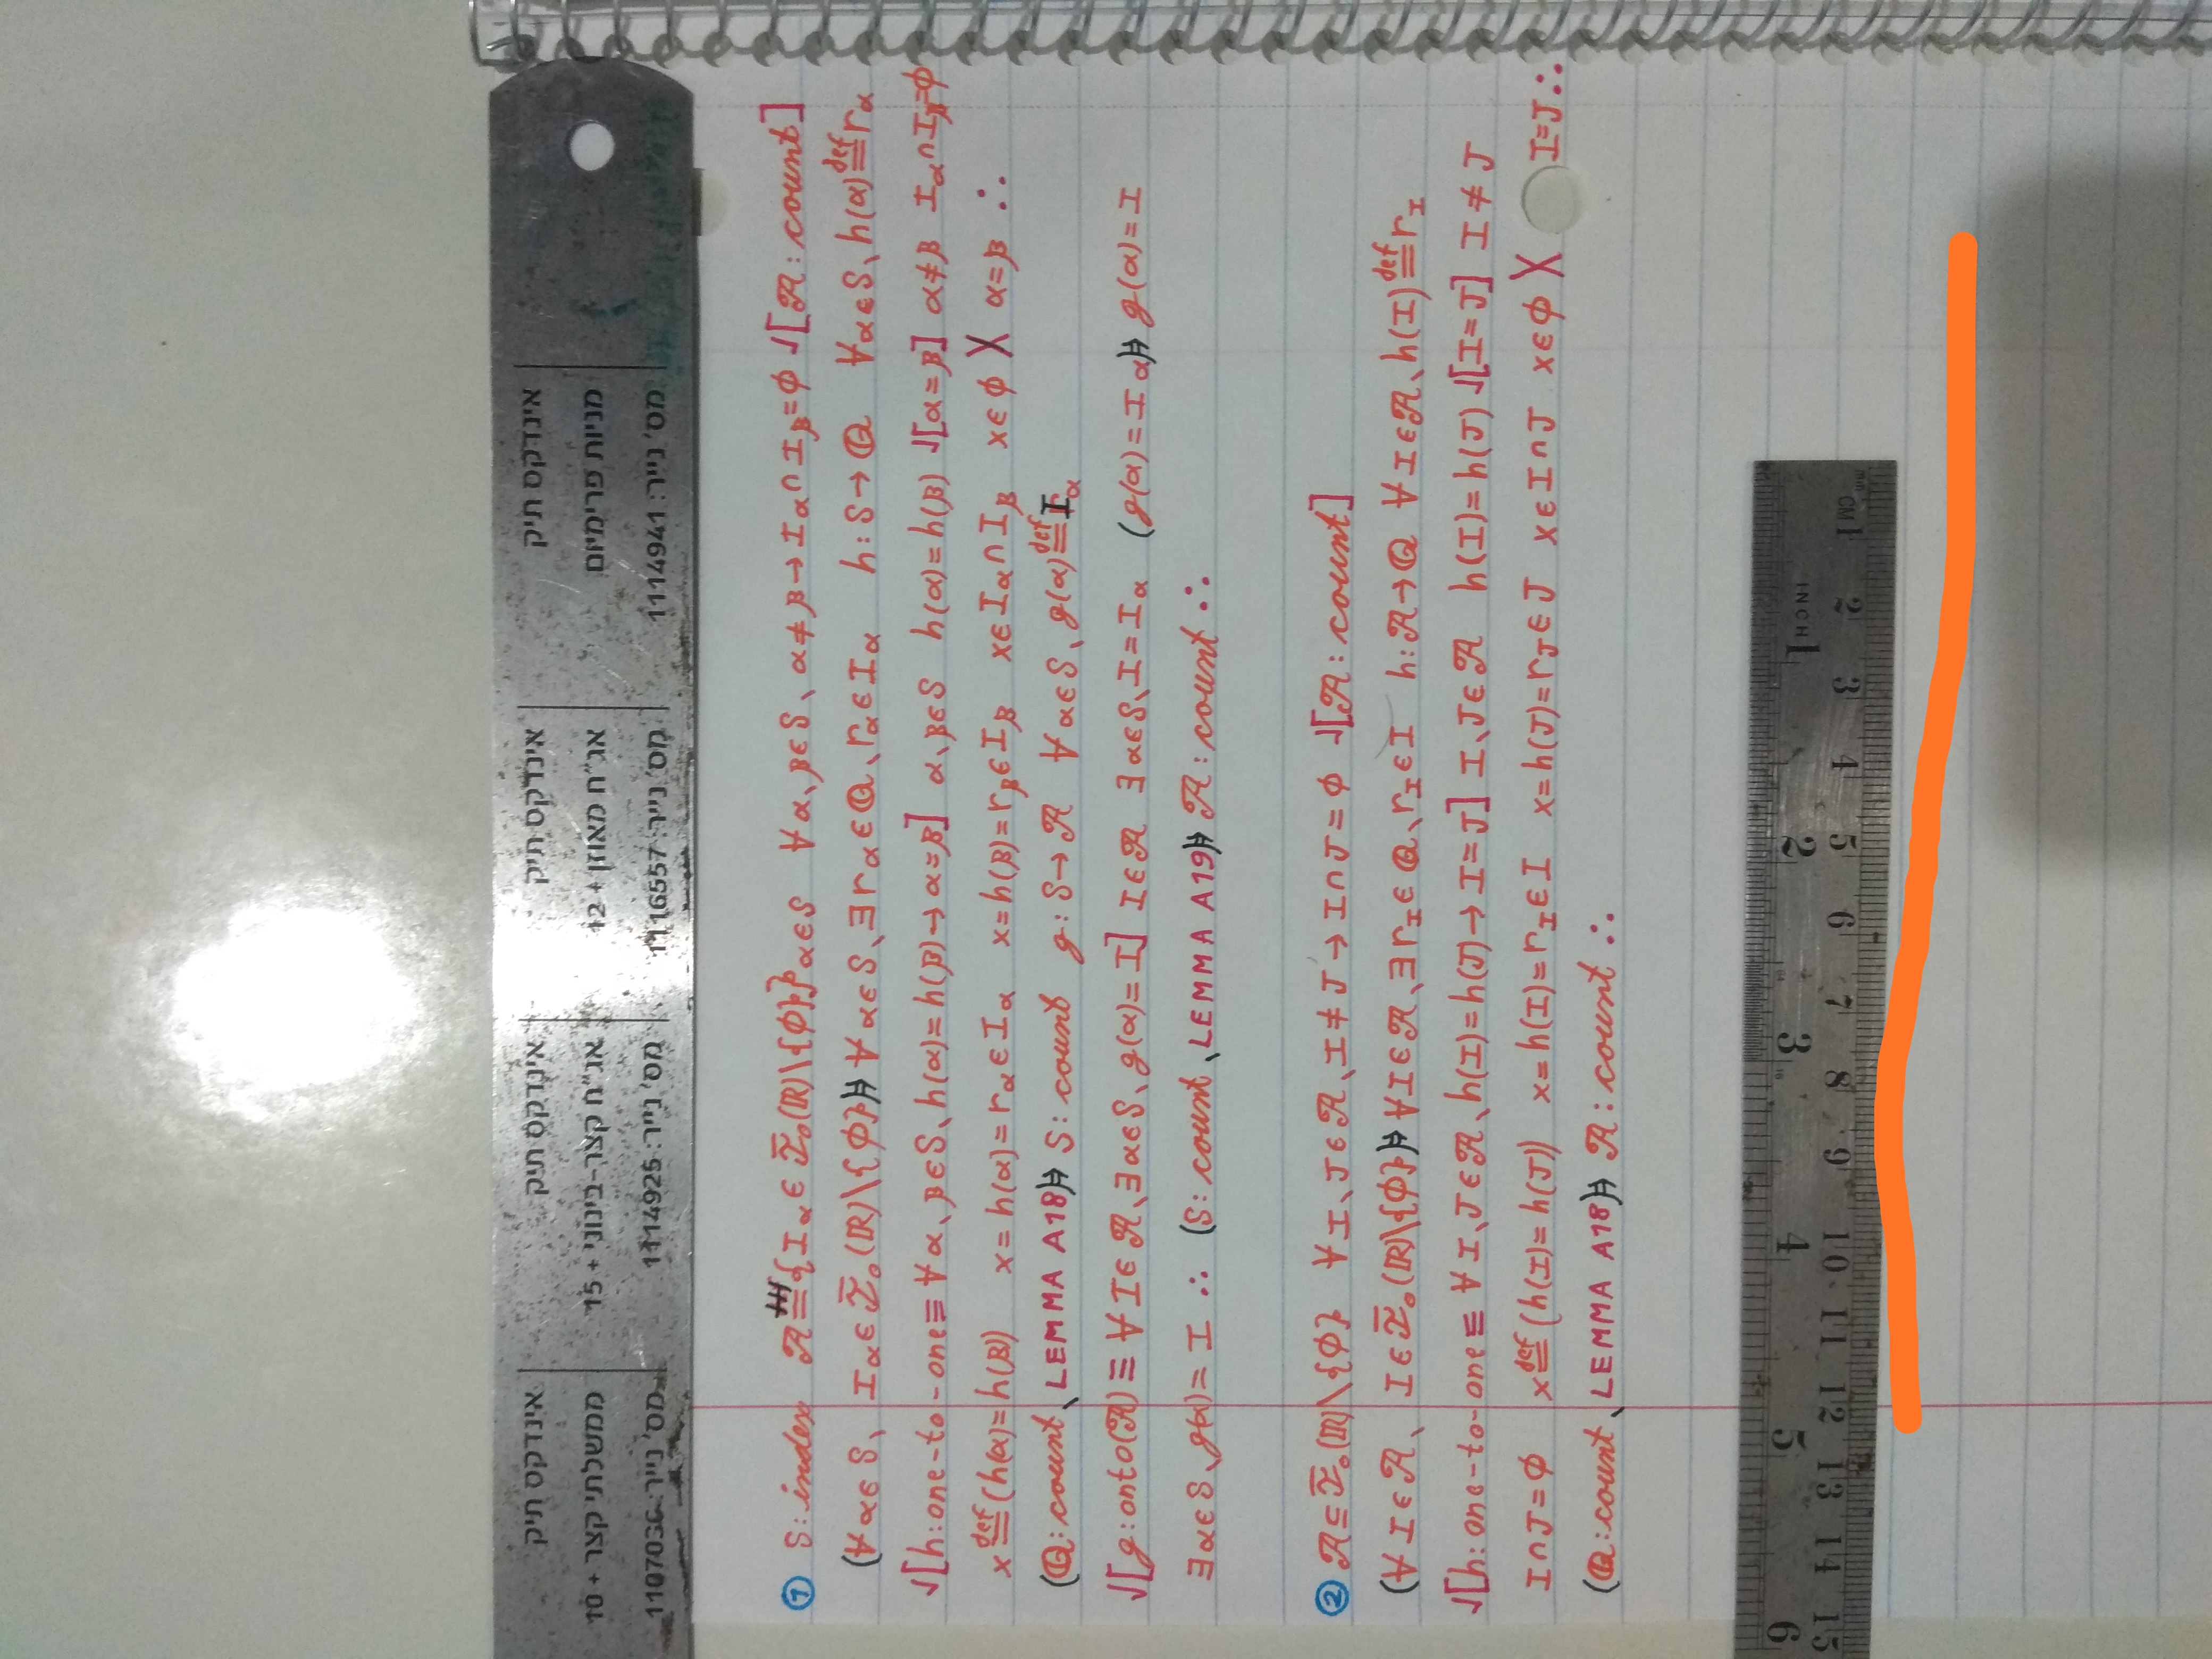 קוד סקיצה
10 + קצר ממשלתי
מס' נייר: 1107036
קוד סקיצה
15 + קצר-בינוני או
מס' נייר: 1114925
קוד סקיצה
12 + מאוזן או
מס' נייר: 1116557
קוד סקיצה
פנסיות
מס' נייר: 1114941
① S:index 𝒜≡{I_α ∈ Ī₀(ℝ)\{ϕ}}_{α∈S} ∀α、β∈S、α≠β→I_α∩I_β=ϕ √[𝒜:count]
(∀α∈S、 I_α∈Ī₀(ℝ)\{ϕ})⇒ ∀α∈S、∃r_α∈ℚ、r_α∈I_α h:S→ℚ ∀α∈S、h(α)≝r_α
√[h:one-to-one≡∀α、β∈S、h(α)=h(β)→α=β] α、β∈S h(α)=h(β) √[α=β] α≠β I_α∩I_β=ϕ
x≝(h(α)=h(β)) x=h(α)=r_α∈I_α x=h(β)=r_β∈I_β x∈I_α∩I_β x∈ϕ X α=β ∴
(ℚ:count、LEMMA A18)⇒ S:count g:S→𝒜 ∀α∈S、g(α)≝I_α
√[g:onto(𝒜)≡∀I∈𝒜、∃α∈S、g(α)=I] I∈𝒜 ∃α∈S、I=I_α (g(α)=I_α)⇒ g(α)=I
∃α∈S、g(α)=I ∴ (S:count、LEMMA A19)⇒ 𝒜:count ∴
② 𝒜⊆Ī₀(ℝ)\{ϕ} ∀I、J∈𝒜、I≠J→I∩J=ϕ √[𝒜:count]
(∀I∈𝒜、 I∈Ī₀(ℝ)\{ϕ})⇒ ∀I∈𝒜、∃r_I∈ℚ、r_I∈I h:𝒜→ℚ ∀I∈𝒜、h(I)≝r_I
√[h:one-to-one≡∀I、J∈𝒜、h(I)=h(J)→I=J] I、J∈𝒜 h(I)=h(J) √[I=J] I≠J
I∩J=ϕ x≝(h(I)=h(J)) x=h(I)=r_I∈I x=h(J)=r_J∈J x∈I∩J x∈ϕ X I=J ∴
(ℚ:count、LEMMA A18)⇒ 𝒜:count ∴
mm CM 1 2 3 4 5 6 7 8 9 10 11 12 13 14 15
INCH 1 2 3 4 5 6